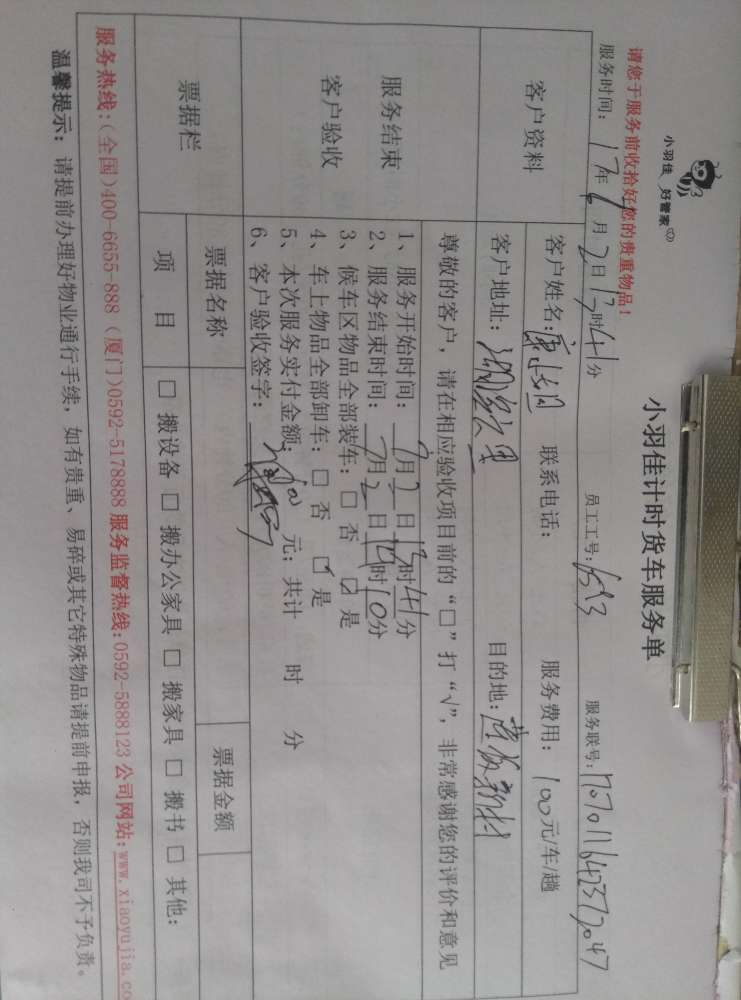 小羽佳 好管家
小羽佳计时货车服务单
请您于服务前收拾好您的贵重物品!
服务时间: 17年7月2日13时41分 员工工号: 服务联号:
客户资料
客户姓名: 联系电话: 服务费用: 100元/车/趟
客户地址: 目的地:
服务结束
客户验收
尊敬的客户, 请在相应验收项目前的“□”打“√”, 非常感谢您的评价和意见
1、服务开始时间: 7月2日13时41分
2、服务结束时间: 7月2日14时10分
3、候车区物品全部装车: □ 否 ☑ 是
4、车上物品全部卸车: □ 否 ☑ 是
5、本次服务实付金额: 元; 共计 时 分
6、客户验收签字:
票据栏
票据名称 票据金额
项 目 □ 搬设备 □ 搬办公家具 □ 搬家具 □ 搬书 □ 其他:
服务热线:(全国)400-6655-888 (厦门)0592-5178888 服务监督热线:0592-5888123 公司网站:www.xiaoyujia.co
温馨提示: 请提前办理好物业通行手续, 如有贵重、易碎或其它特殊物品请提前申报, 否则我司不予负责。